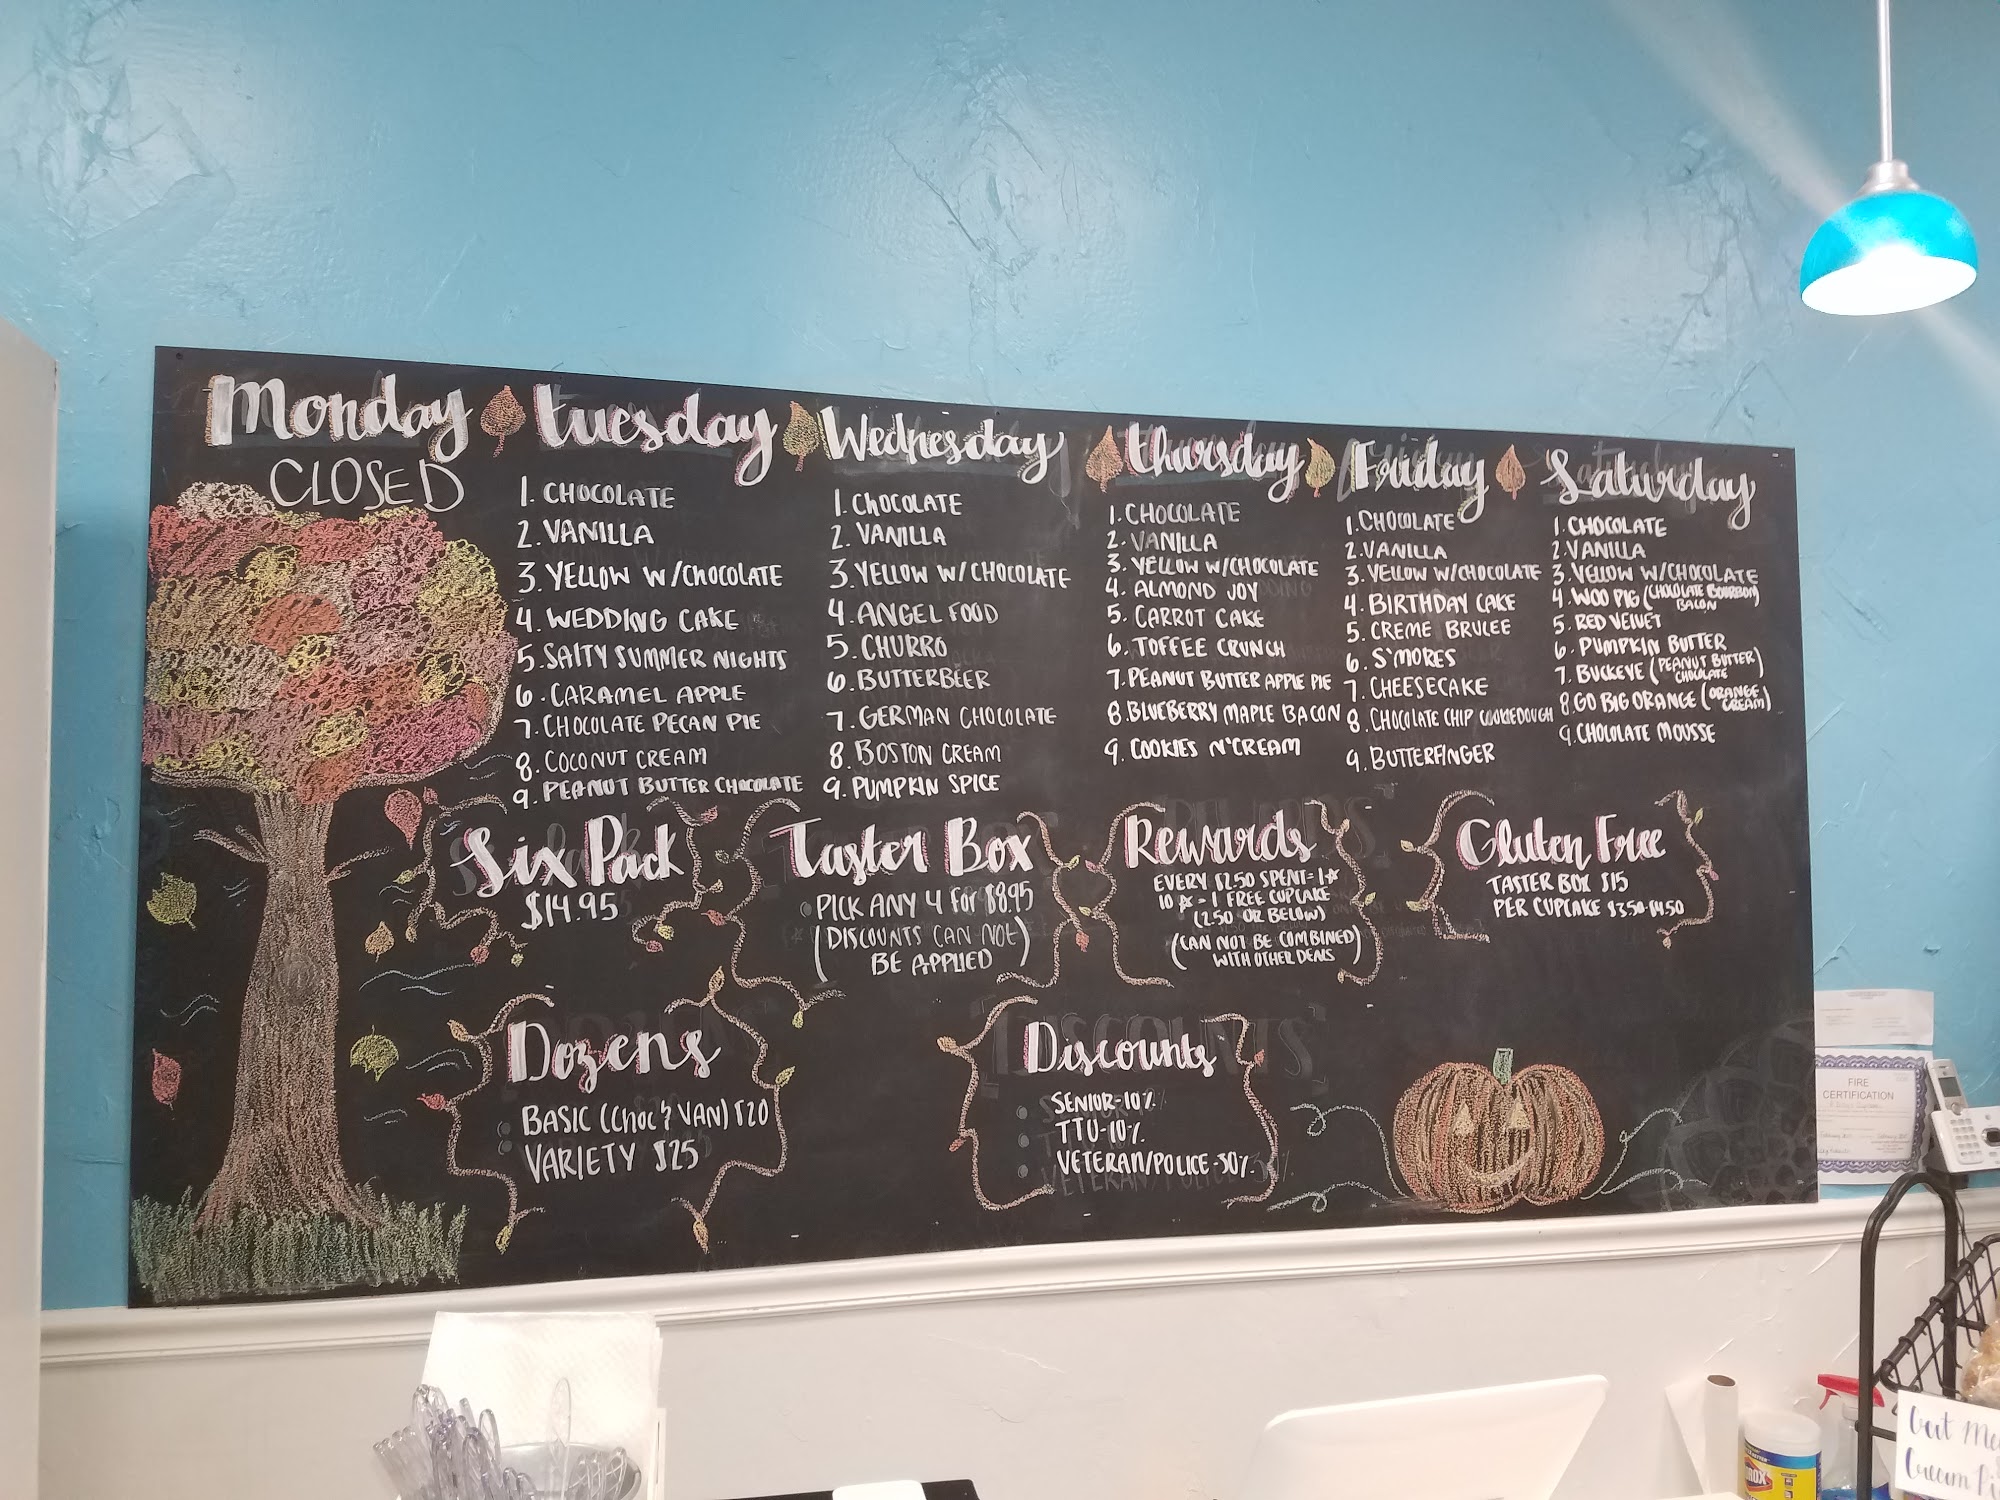 Monday
CLOSED
Tuesday
1. CHOCOLATE
2. VANILLA
3. YELLOW W/CHOCOLATE
4. WEDDING CAKE
5. SALTY SUMMER NIGHTS
6. CARAMEL APPLE
7. CHOCOLATE PECAN PIE
8. COCONUT CREAM
9. PEANUT BUTTER CHOCOLATE
Wednesday
1. CHOCOLATE
2. VANILLA
3. YELLOW W/CHOCOLATE
4. ANGEL FOOD
5. CHURRO
6. BUTTERBEER
7. GERMAN CHOCOLATE
8. BOSTON CREAM
9. PUMPKIN SPICE
Thursday
1. CHOCOLATE
2. VANILLA
3. YELLOW W/CHOCOLATE
4. ALMOND JOY
5. CARROT CAKE
6. TOFFEE CRUNCH
7. PEANUT BUTTER APPLE PIE
8. BLUEBERRY MAPLE BACON
9. COOKIES N'CREAM
Friday
1. CHOCOLATE
2. VANILLA
3. YELLOW W/CHOCOLATE
4. BIRTHDAY CAKE
5. CREME BRULEE
6. S'MORES
7. CHEESECAKE
8. CHOCOLATE CHIP COOKIEDOUGH
9. BUTTERFINGER
Saturday
1. CHOCOLATE
2. VANILLA
3. YELLOW W/CHOCOLATE
4. WOO PIG (CHOCOLATE BOURBON
BACON)
5. RED VELVET
6. PUMPKIN BUTTER
7. BUCKEYE (PEANUT BUTTER
CHOCOLATE)
8 GO BIG ORANGE (ORANGE
CREAM)
9. CHOCOLATE MOUSSE
Six Pack
$14.95
Taster Box
PICK ANY 4 FOR $8.95
(DISCOUNTS CAN NOT
BE APPLIED)
Rewards
EVERY $2.50 SPENT = 1☆
10 ☆ = 1 FREE CUPCAKE
(2.50 OR BELOW)
(CAN NOT BE COMBINED
WITH OTHER DEALS)
Gluten Free
TASTER BOX $15
PER CUPCAKE $3.50-$4.50
Dozens
BASIC (CHOC & VAN) $20
VARIETY $25
Discounts
SENIOR-10%
TTU-10%
VETERAN/POLICE-30%
FIRE
CERTIFICATION
Cream Pi